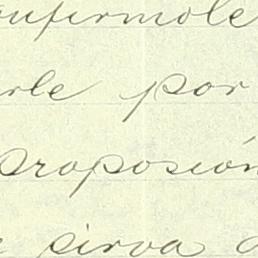 enfermole
rle por
proposión
sirva